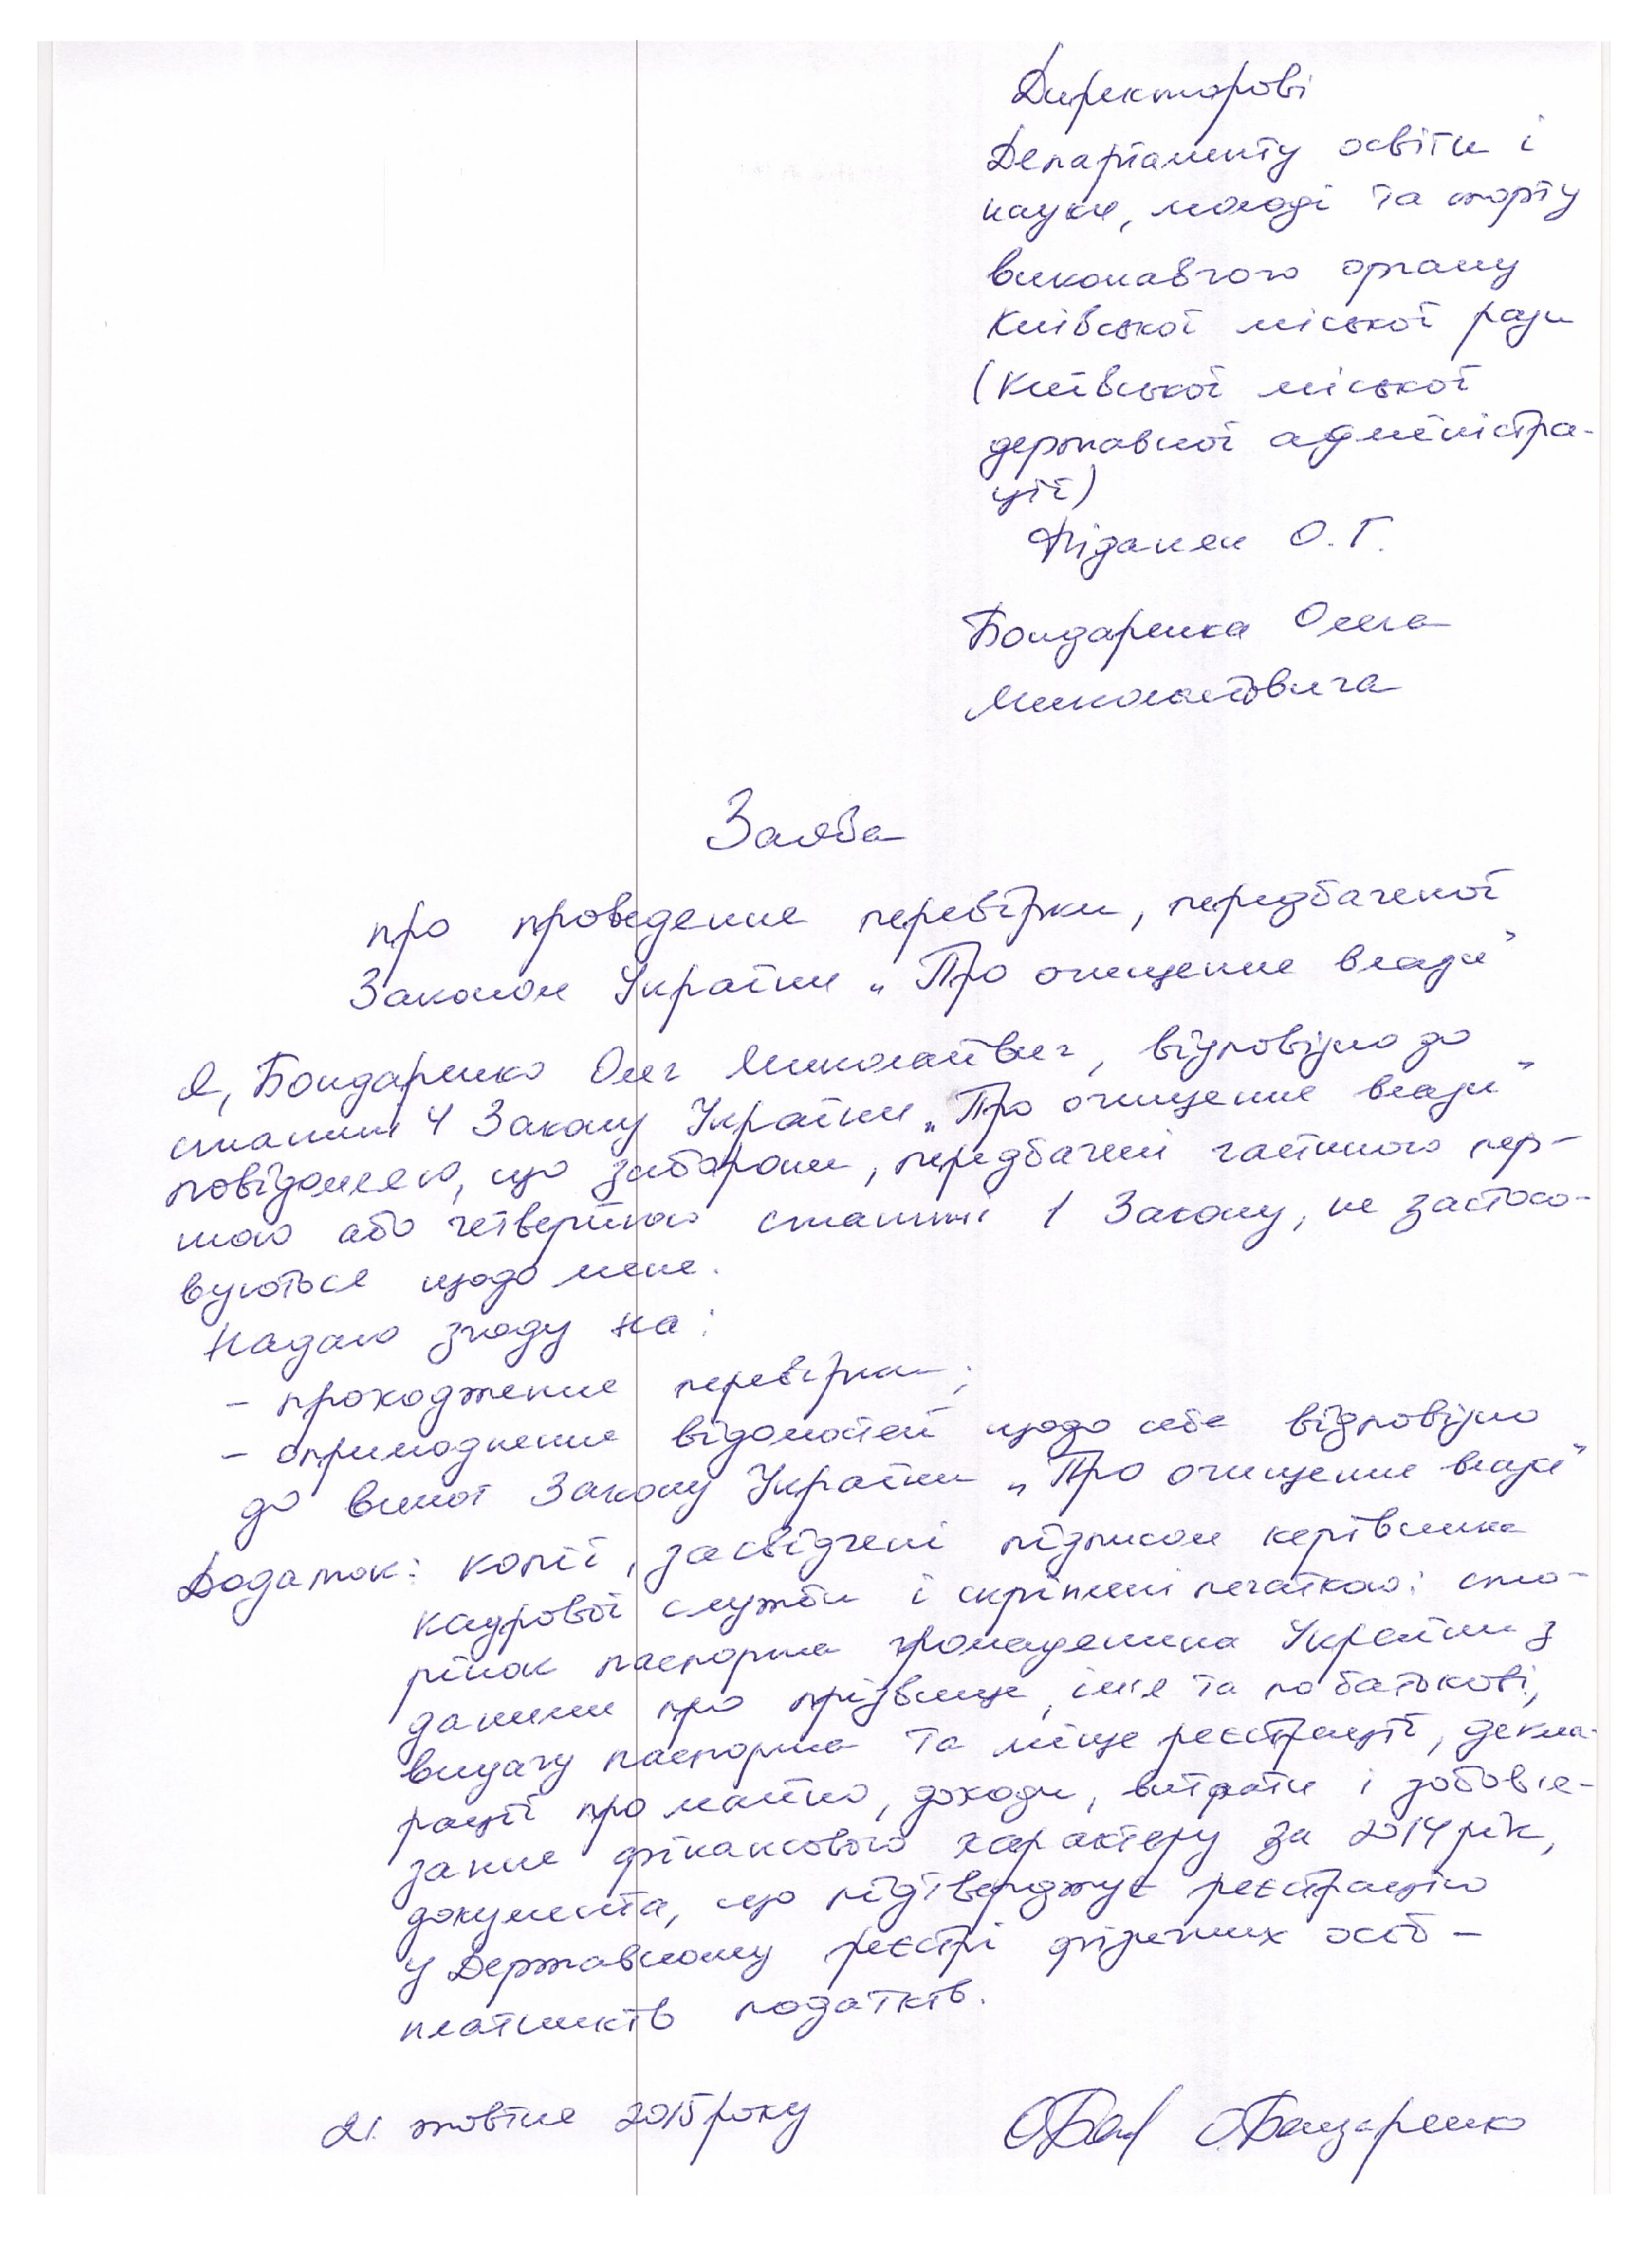 Директорові
Департаменту освіти і
науки, молоді та спорту
виконавчого органу
Київської міської ради
(Київської міської
державної адміністра-
ції)
Фіданян О.Г.
Бондаренка Олега
Миколайовича
Заява
про проведення перевірки, передбаченої
Законом України „Про очищення влади"
Я, Бондаренко Олег Миколайович, відповідно до
статті 4 Закону України „Про очищення влади"
повідомляю, що заборони, передбачені частиною пер-
шою або четвертою статті 1 Закону, не застосо-
вуються щодо мене.
Надаю згоду на:
- проходження перевірки;
- оприлюднення відомостей щодо себе відповідно
до вимог Закону України „Про очищення влади"
Додаток: копії, засвідчені підписом керівника
кадрової служби і скріплені печаткою: сто-
рінок паспорта громадянина України з
даними про прізвище, ім'я та по батькові,
видачу паспорта та місце реєстрації, декла-
рації про майно, доходи, витрати і зобов'я-
зання фінансового характеру за 2014 рік,
документа, що підтверджує реєстрацію
у Державному реєстрі фізичних осіб -
платників податків.
21 жовтня 2015 року
О.Бондаренко